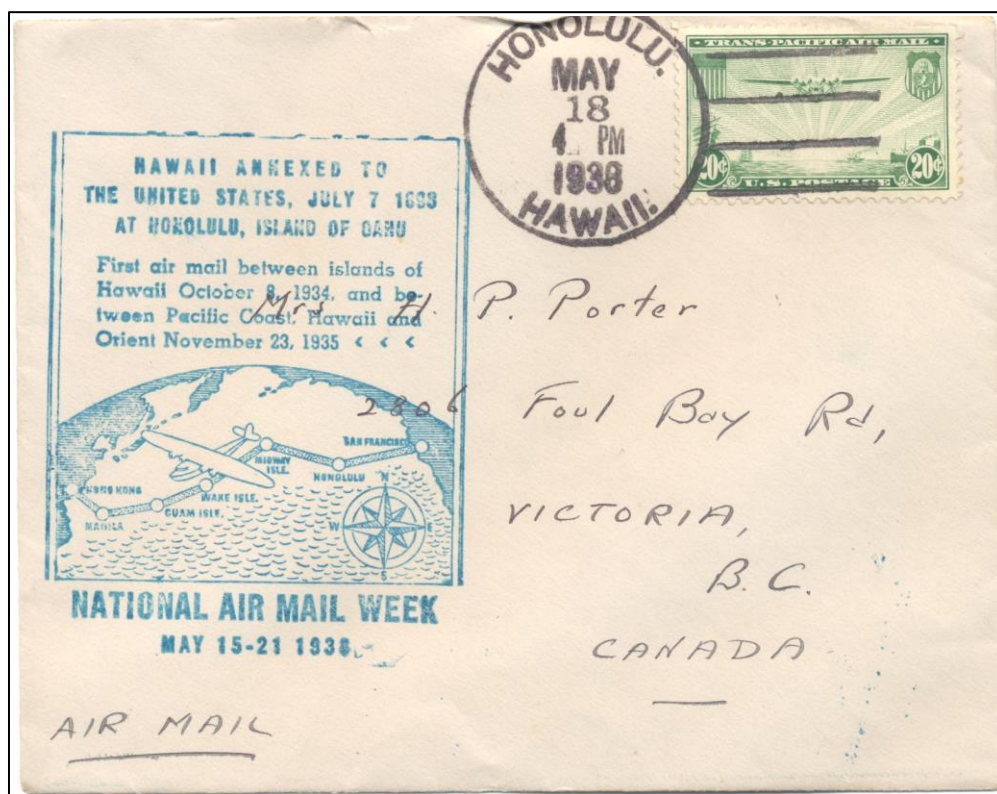 HONOLULU.
MAY
18
4 PM
1938
HAWAII.
· TRANS-PACIFIC AIR MAIL ·
20¢ 20¢
U.S. POSTAGE
HAWAII ANNEXED TO
THE UNITED STATES, JULY 7 1898
AT HONOLULU, ISLAND OF OAHU
First air mail between islands of
Hawaii October 8, 1934, and be-
tween Pacific Coast, Hawaii and
Orient November 23, 1935 < < <
SAN FRANCISCO
MIDWAY
ISLE.
HONOLULU
HONG KONG
WAKE ISLE.
GUAM ISLE.
MANILA
N
W E
S
NATIONAL AIR MAIL WEEK
MAY 15-21 1938
Mrs H. P. Porter
2806 Foul Bay Rd,
VICTORIA,
B.C.
CANADA
AIR MAIL